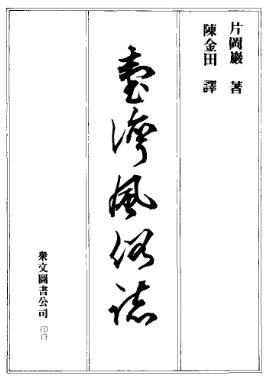 片岡巖 著
陳金田 譯
臺灣風俗誌
衆文圖書公司 印行